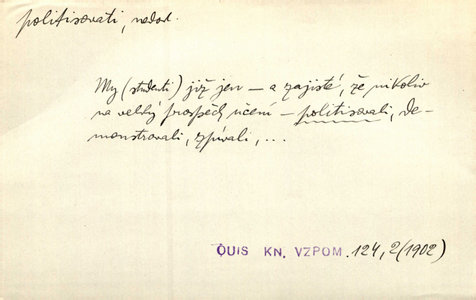 politisovati, nedok.
My (studenti) již jen – a zajisté, že nikoliv
na velký prospěch učení – politisovali, de-
monstrovali, zpívali, ...
QUIS KN. VZPOM. 124, 2 (1902)